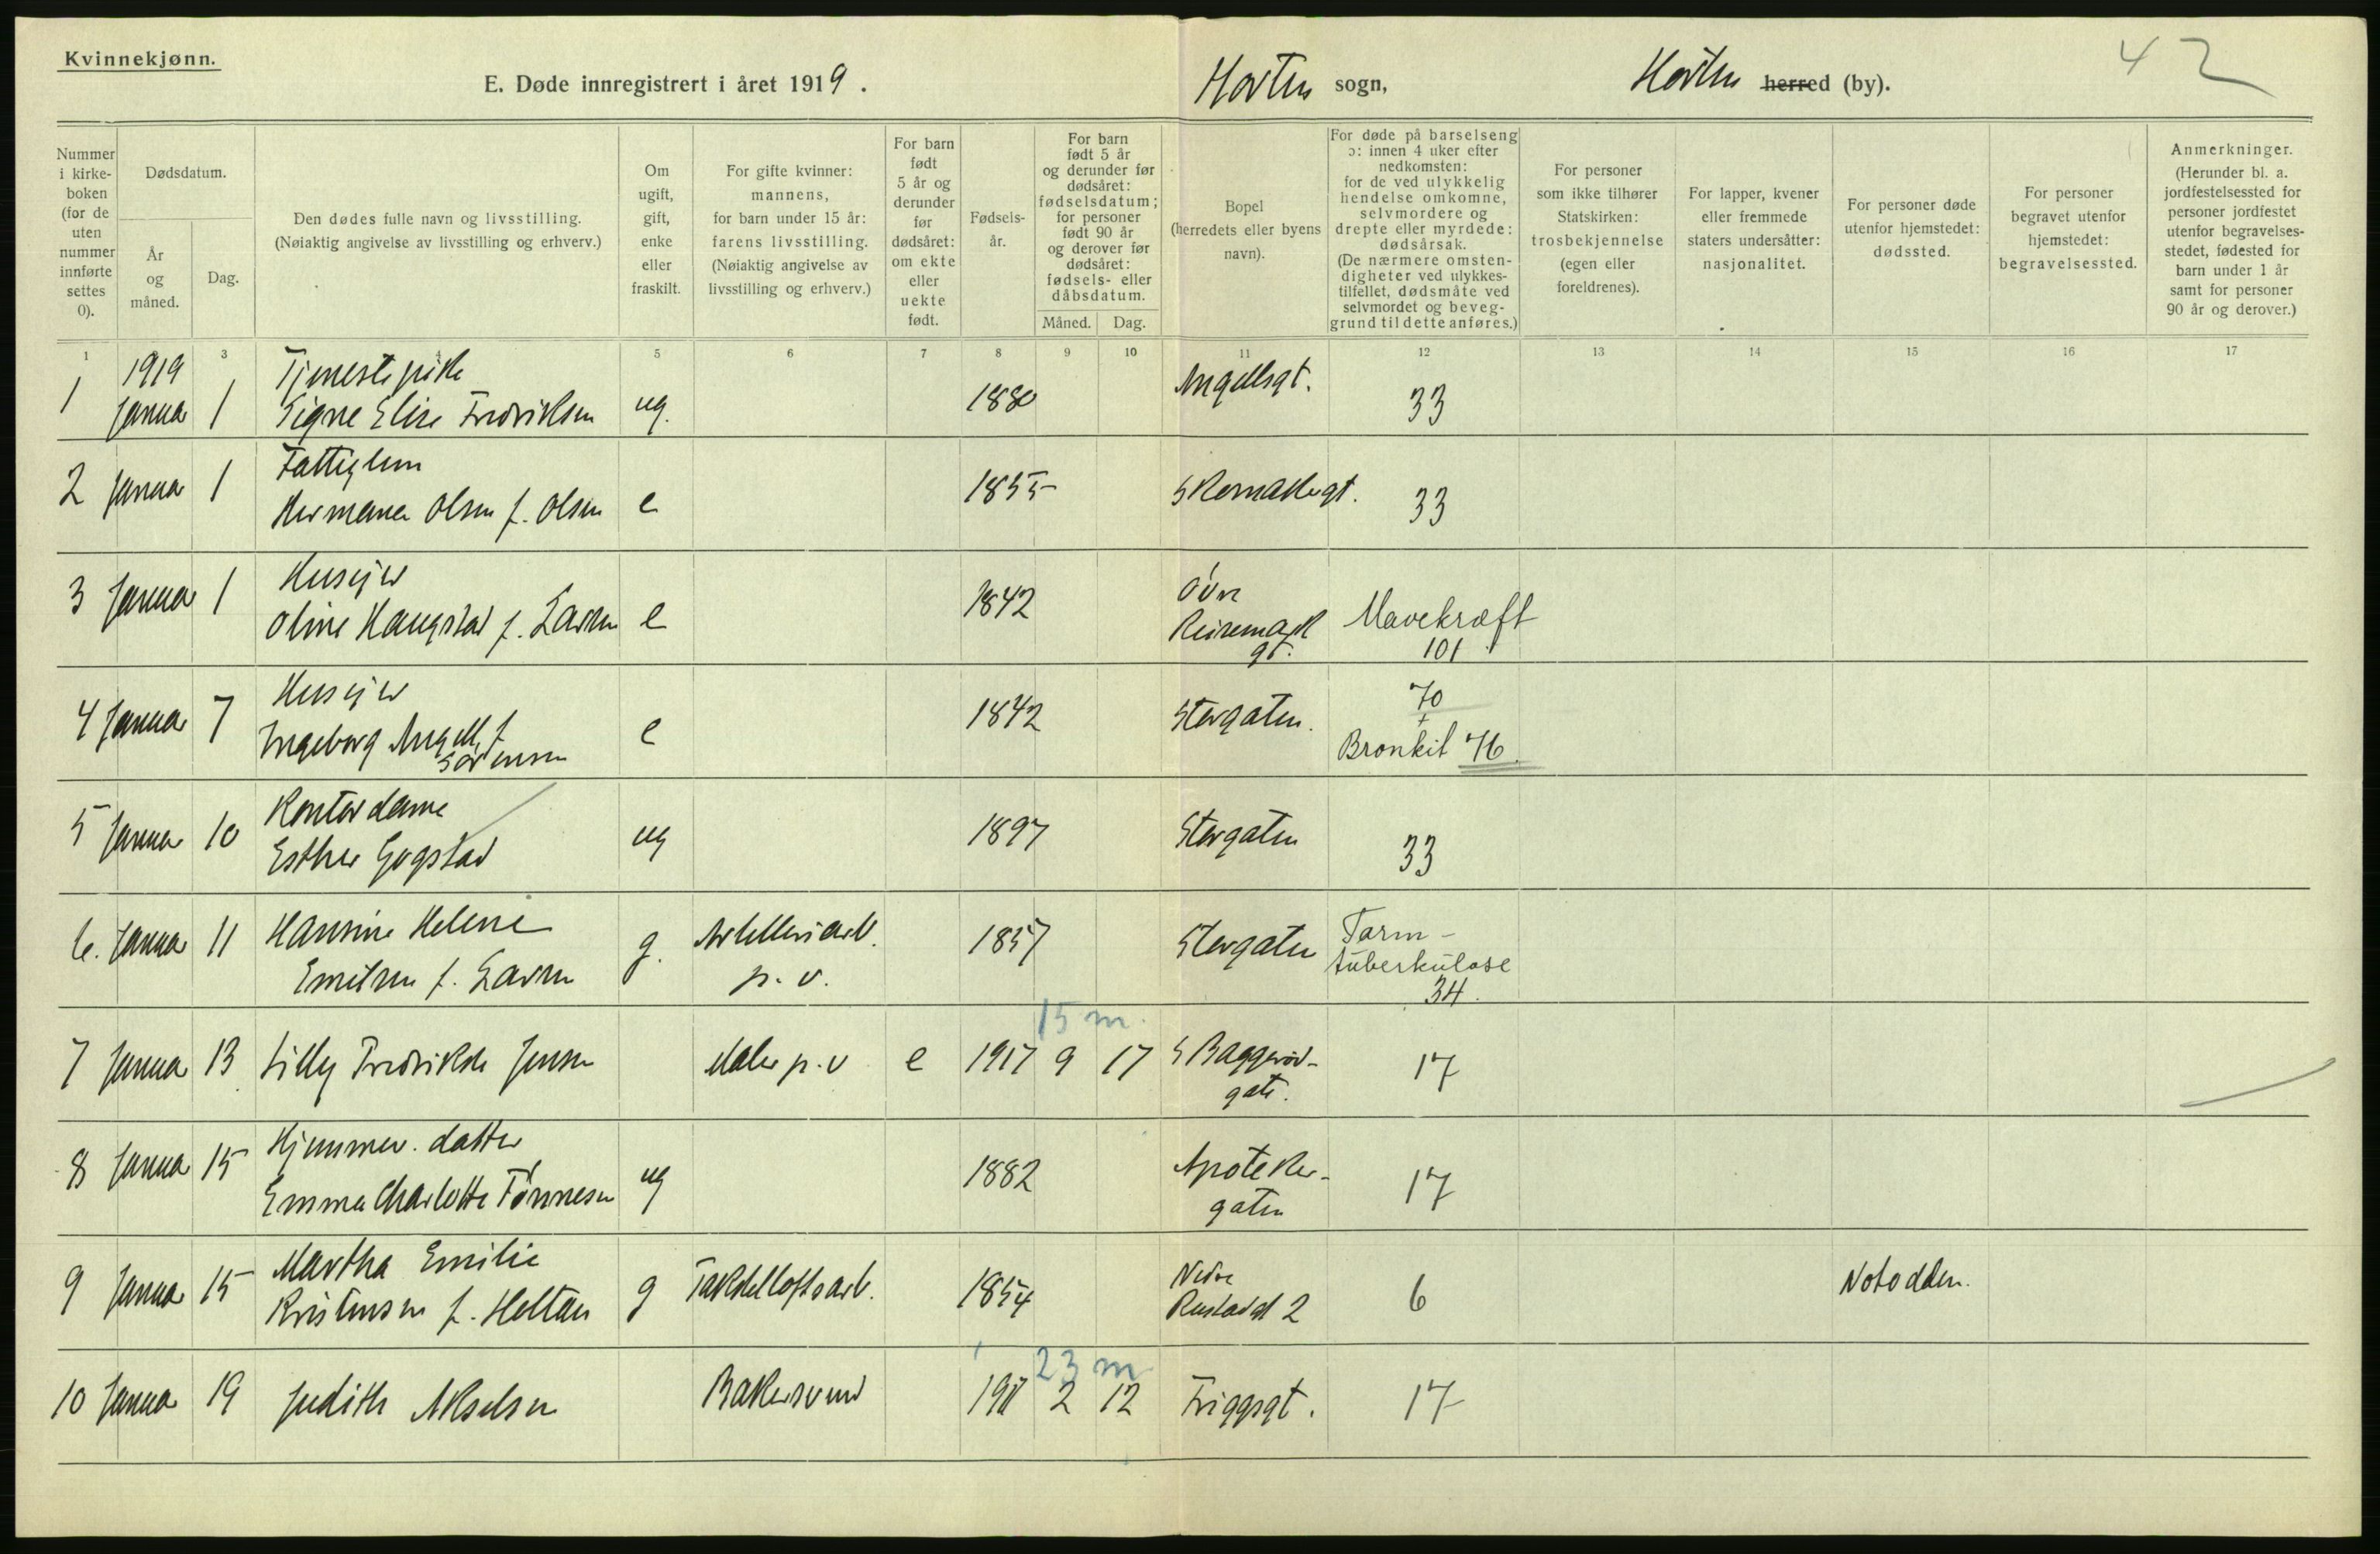 Kvinnekjønn.
E. Døde innregistrert i året 1919.
Horten sogn,
Horten herred (by).
42
Nummer i kirke-boken (for de uten nummer innførte settes 0).
Dødsdatum.
År og måned.
Dag.
Den dødes fulle navn og livsstilling.
(Nøiaktig angivelse av livsstilling og erhverv.)
Om ugift, gift, enke eller fraskilt.
For gifte kvinner: mannens, for barn under 15 år: farens livsstilling. (Nøiaktig angivelse av livsstilling og erhverv.)
For barn født 5 år og derunder før dødsåret: om ekte eller uekte født.
Fødsels-år.
For barn født 5 år og derunder før dødsåret: fødselsdatum; for personer født 90 år og derover før dødsåret: fødsels- eller dåbsdatum.
Måned. Dag.
Bopel (herredets eller byens navn).
For døde på barselseng ɔ: innen 4 uker efter nedkomsten: for de ved ulykkelig hendelse omkomne, selvmordere og drepte eller myrdede: dødsårsak. (De nærmere omsten-digheter ved ulykkes-tilfellet, dødsmåte ved selvmordet og beveg-grund til dette anføres.)
For personer som ikke tilhører Statskirken: trosbekjennelse (egen eller foreldrenes).
For lapper, kvener eller fremmede staters undersåtter: nasjonalitet.
For personer døde utenfor hjemstedet: dødssted.
For personer begravet utenfor hjemstedet: begravelsessted.
Anmerkninger. (Herunder bl. a. jordfestelsessted for personer jordfestet utenfor begravelses-stedet, fødested for barn under 1 år samt for personer 90 år og derover.)
1 3 5 6 7 8 9 10 11 12 13 14 15 16 17
1919 Tjenestepike Angellsgt.
1 Januar 1 Signe Elise Fredriksen ug. 1880 33
Fattiglem
2 Januar 1 Hermana Olsen f. Olsen e 1855 Skomakergt. 33
Huseier Övre
3 Januar 1 Oline Haugstad f. Larsen e 1842 Reiremark gt. Mavekræft 101
Huseier 70 +
4 Januar 7 Ingeborg Angell f. Sörensen e 1842 Storgaten. Bronkit 76.
Kontordame
5 Januar 10 Esther Gogstad ug 1897 Storgaten 33
6. Januar 11 Hansine Helene g. Artelleriarb. 1857 Storgaten Tarm-
Emilsen f. Larsen p. v. tuberkulose 34.
15 m.
7 Januar 13 Lilly Fredrikke Jensen Maler p.v e 1917 9 17 S Baggerød- 17
gate.
Hjemmev. datter
8 Januar 15 Emma Charlotte Tönnesen ug 1882 Apoteker-
gaten 17
Martha Emilie Nedre
9 Januar 15 Kristensen f. Holtan g Takkelloftsarb. 1854 Rustadgt 2 6 Notodden.
23 m
10 Januar 19 Judith Akselsen Bakersvend 1917 2 12 Friggsgt. 17